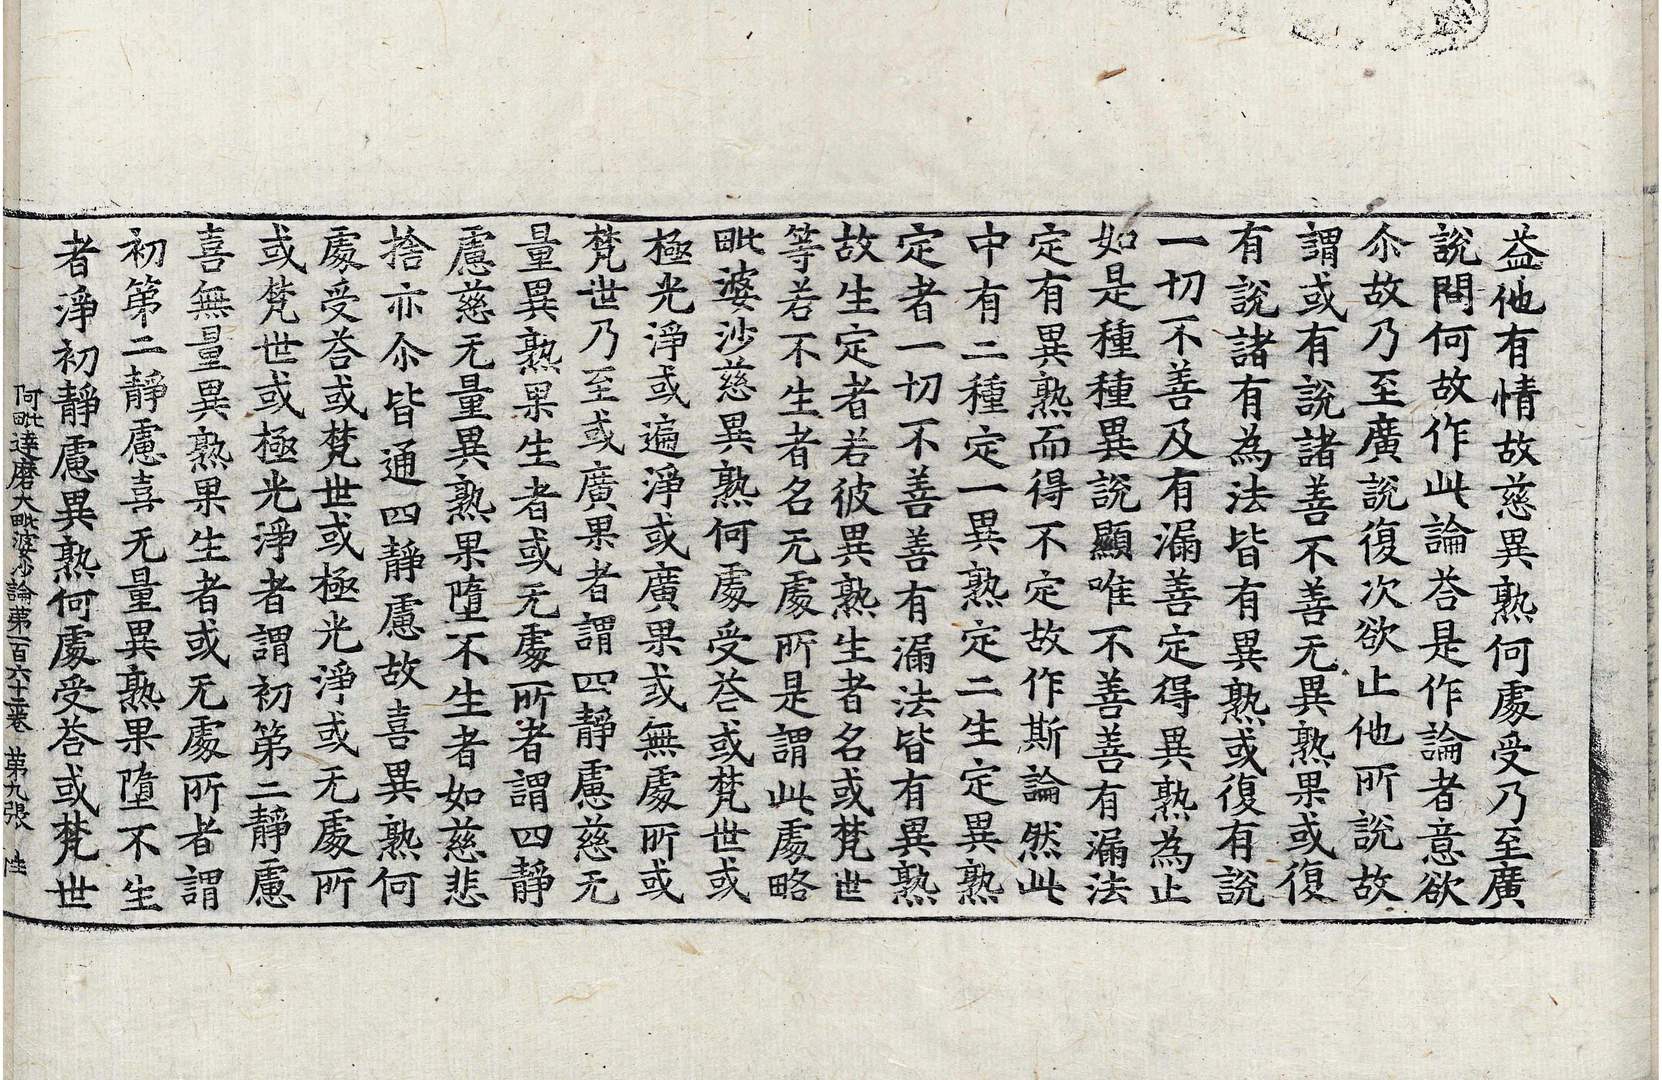 益他有情故慈異熟何處受乃至廣
說問何故作此論荅是作論者意欲
尒故乃至廣說復次欲止他所說故
謂或有說諸善不善无異熟果或復
有說諸有為法皆有異熟或復有說
一切不善及有漏善定得異熟為止
如是種種異說顯唯不善善有漏法
定有異熟而得不定故作斯論然此
中有二種定一異熟定二生定異熟
定者一切不善善有漏法皆有異熟
故生定者若彼異熟生者名或梵世
等若不生者名无處所是謂此處略
毗婆沙慈異熟何處受荅或梵世或
極光淨或遍淨或廣果或無處所或
梵世乃至或廣果者謂四靜慮慈无
量異熟果生者或无處所者謂四靜
慮慈无量異熟果墮不生者如慈悲
捨亦尒皆通四靜慮故喜異熟何
處受荅或梵世或極光淨或无處所
或梵世或極光淨者謂初第二靜慮
喜無量異熟果生者或无處所者謂
初第二靜慮喜无量異熟果墮不生
者淨初靜慮異熟何處受荅或梵世
阿毗達磨大毗婆沙論第百六十三卷 第九張